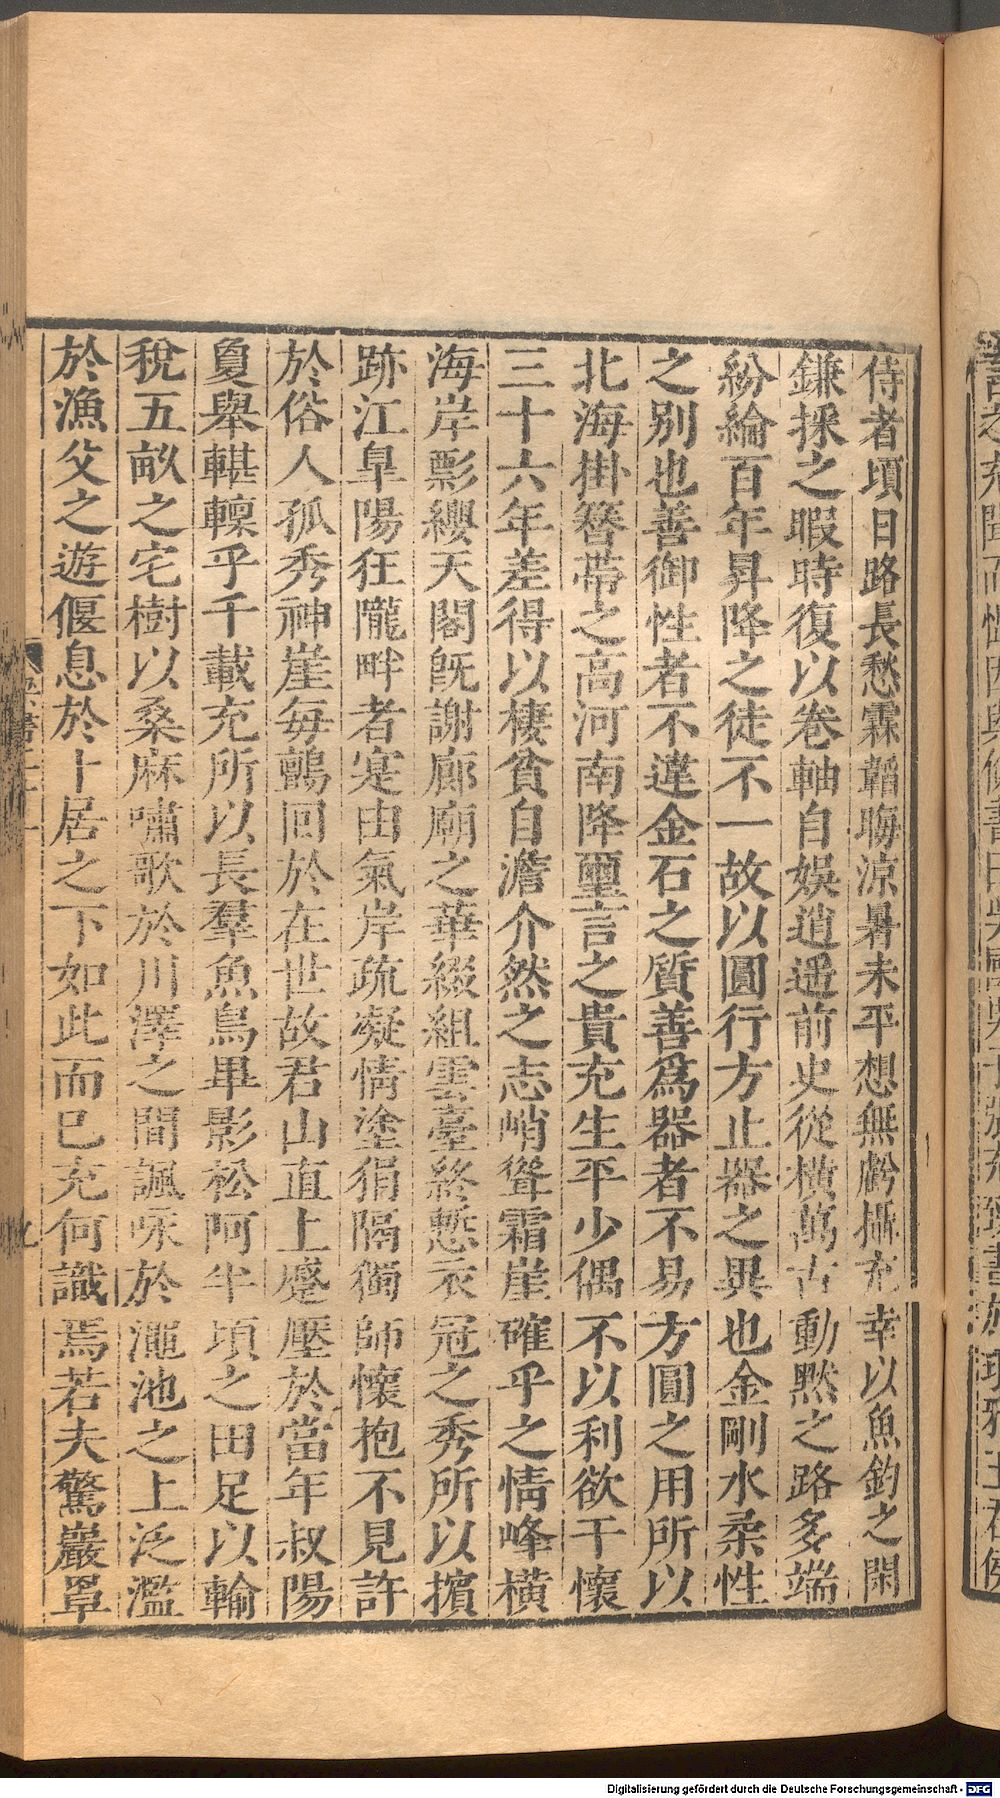 侍者頃日路長愁霖韜晦涼暑未平想無虧攝充幸以魚釣之閑
鎌採之暇時復以卷軸自娛逍遥前史從橫萬古動黙之路多端
紛綸百年昇降之徒不一故以圓行方止器之異也金剛水柔性
之别也善御性者不違金石之質善爲器者不易方圓之用所以
北海掛簪帶之高河南降璽言之貴充生平少偶不以利欲干懷
三十六年差得以棲貧自澹介然之志峭聳霜崖確乎之情峰橫
海岸彯纓天閣旣謝廊廟之華綴組雲臺終慙衣冠之秀所以擯
跡江臯陽狂隴畔者寔由氣岸疏凝情塗狷隔獨師懷抱不見許
於俗人孤秀神崖每邅回於在世故君山直上蹙壓於當年叔陽
敻舉䡖轗乎千載充所以長羣魚鳥畢影松阿半頃之田足以輸
稅五畝之宅樹以桑麻嘯歌於川澤之間諷咏於澠池之上泛濫
於漁父之遊偃息於卜居之下如此而已充何識焉若夫驚巖罩
Digitalisierung gefördert durch die Deutsche Forschungsgemeinschaft - DFG